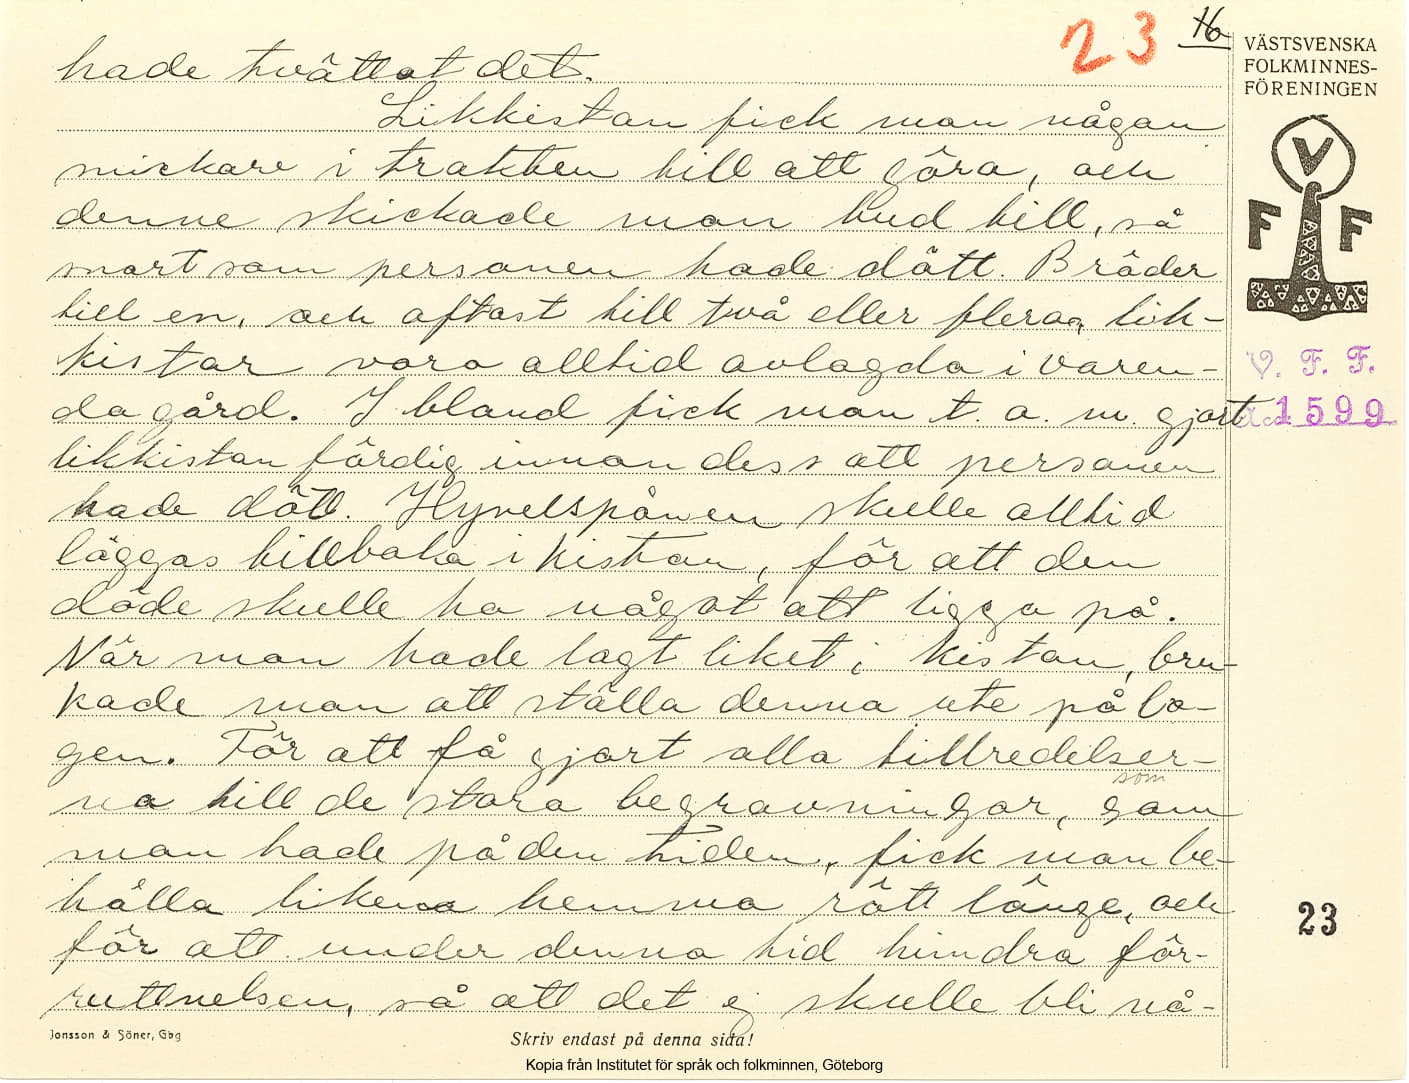 23 16
VÄSTSVENSKA
FOLKMINNES-
FÖRENINGEN
V
F F
V. F. F.
Acc. 1599
23
hade tvättat det.
Likkistan fick man någon
snickare i trakten till att göra, och
denne skickade man bud till, så
snart som personen hade dött. Bräder
till en, och oftast till två eller flera, lik-
kistar voro alltid avlagda i varen-
da gård. I bland fick man t. o. m. gjort
likkistan färdig innan dess att personen
hade dött. Hyvelspånen skulle alltid
läggas tillbaka i kistan, för att den
döde skulle ha något att ligga på.
När man hade lagt liket i kistan, bru-
kade man att ställa denna ute på lo-
gen. För att få gjort alla tillredelser-
na till de stora begravningar, som
som
man hade på den tiden, fick man be-
hålla liken hemma rätt länge, och
för att under denna tid hindra för-
ruttnelsen, så att det ej skulle bli nå-
Jonsson & Söner, Gbg
Skriv endast på denna sida!
Kopia från Institutet för språk och folkminnen, Göteborg